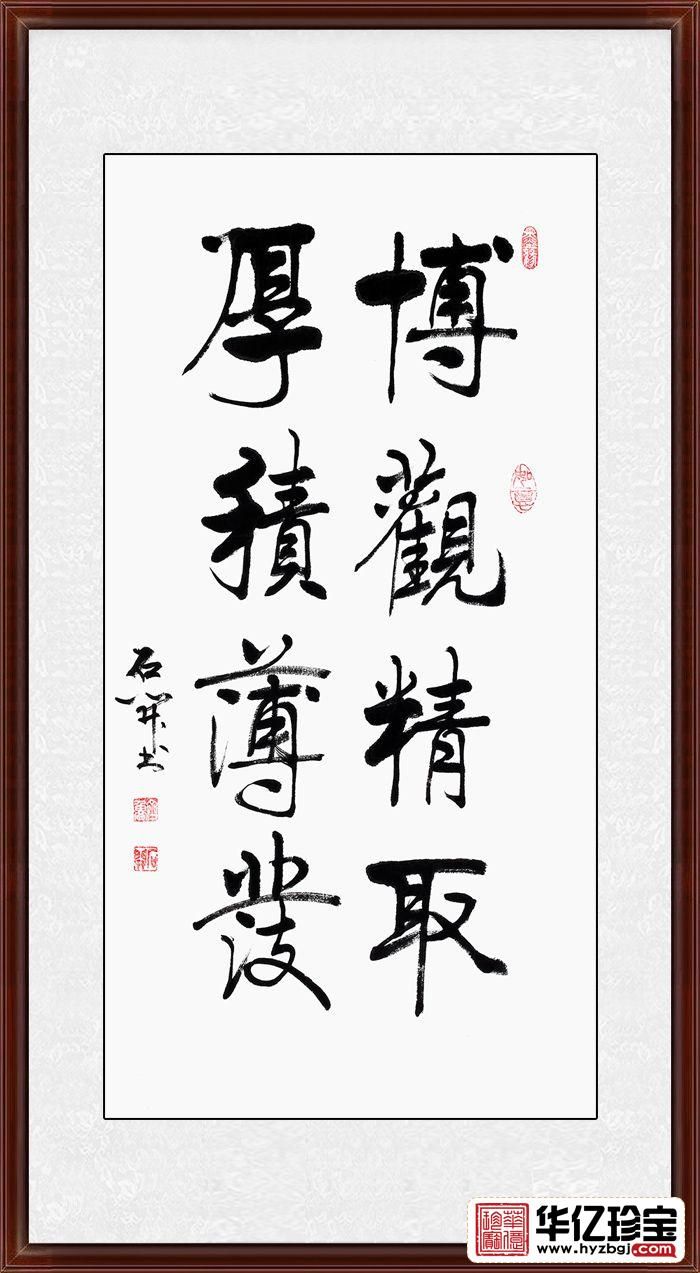 博觀精取
厚積薄發
石開书
华亿珍宝
www.hyzbgj.com